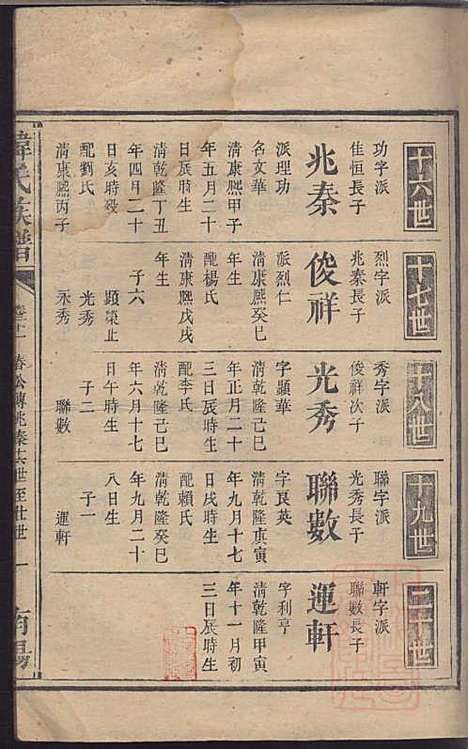 十六世
功字派
佳恒長子
兆秦
派理功
名文華
清康熙甲子
年五月二十
日辰時生
清乾隆丁丑
年四月二十
日亥時歿
配劉氏
清康熙丙子
十七世
烈字派
兆秦長子
俊祥
派烈仁
清康熙癸巳
年生
配楊氏
清康熙戊戌
年生
子六
顯榮止
光秀
永秀
十八世
秀字派
俊祥次子
光秀
字顯華
清乾隆己巳
年正月二十
三日辰時生
配李氏
清乾隆己巳
年六月十七
日午時生
子二
聯數
十九世
聯字派
光秀長子
聯數
字艮英
清乾隆庚寅
年九月十七
日戌時生
配賴氏
清乾隆癸巳
年九月二十
八日生
子一
運軒
二十世
軒字派
聯數長子
運軒
字利亨
清乾隆甲寅
年十一月初
三日辰時生
韓氏族譜
卷十一
春公傳兆秦十六世至廿世
一
南陽